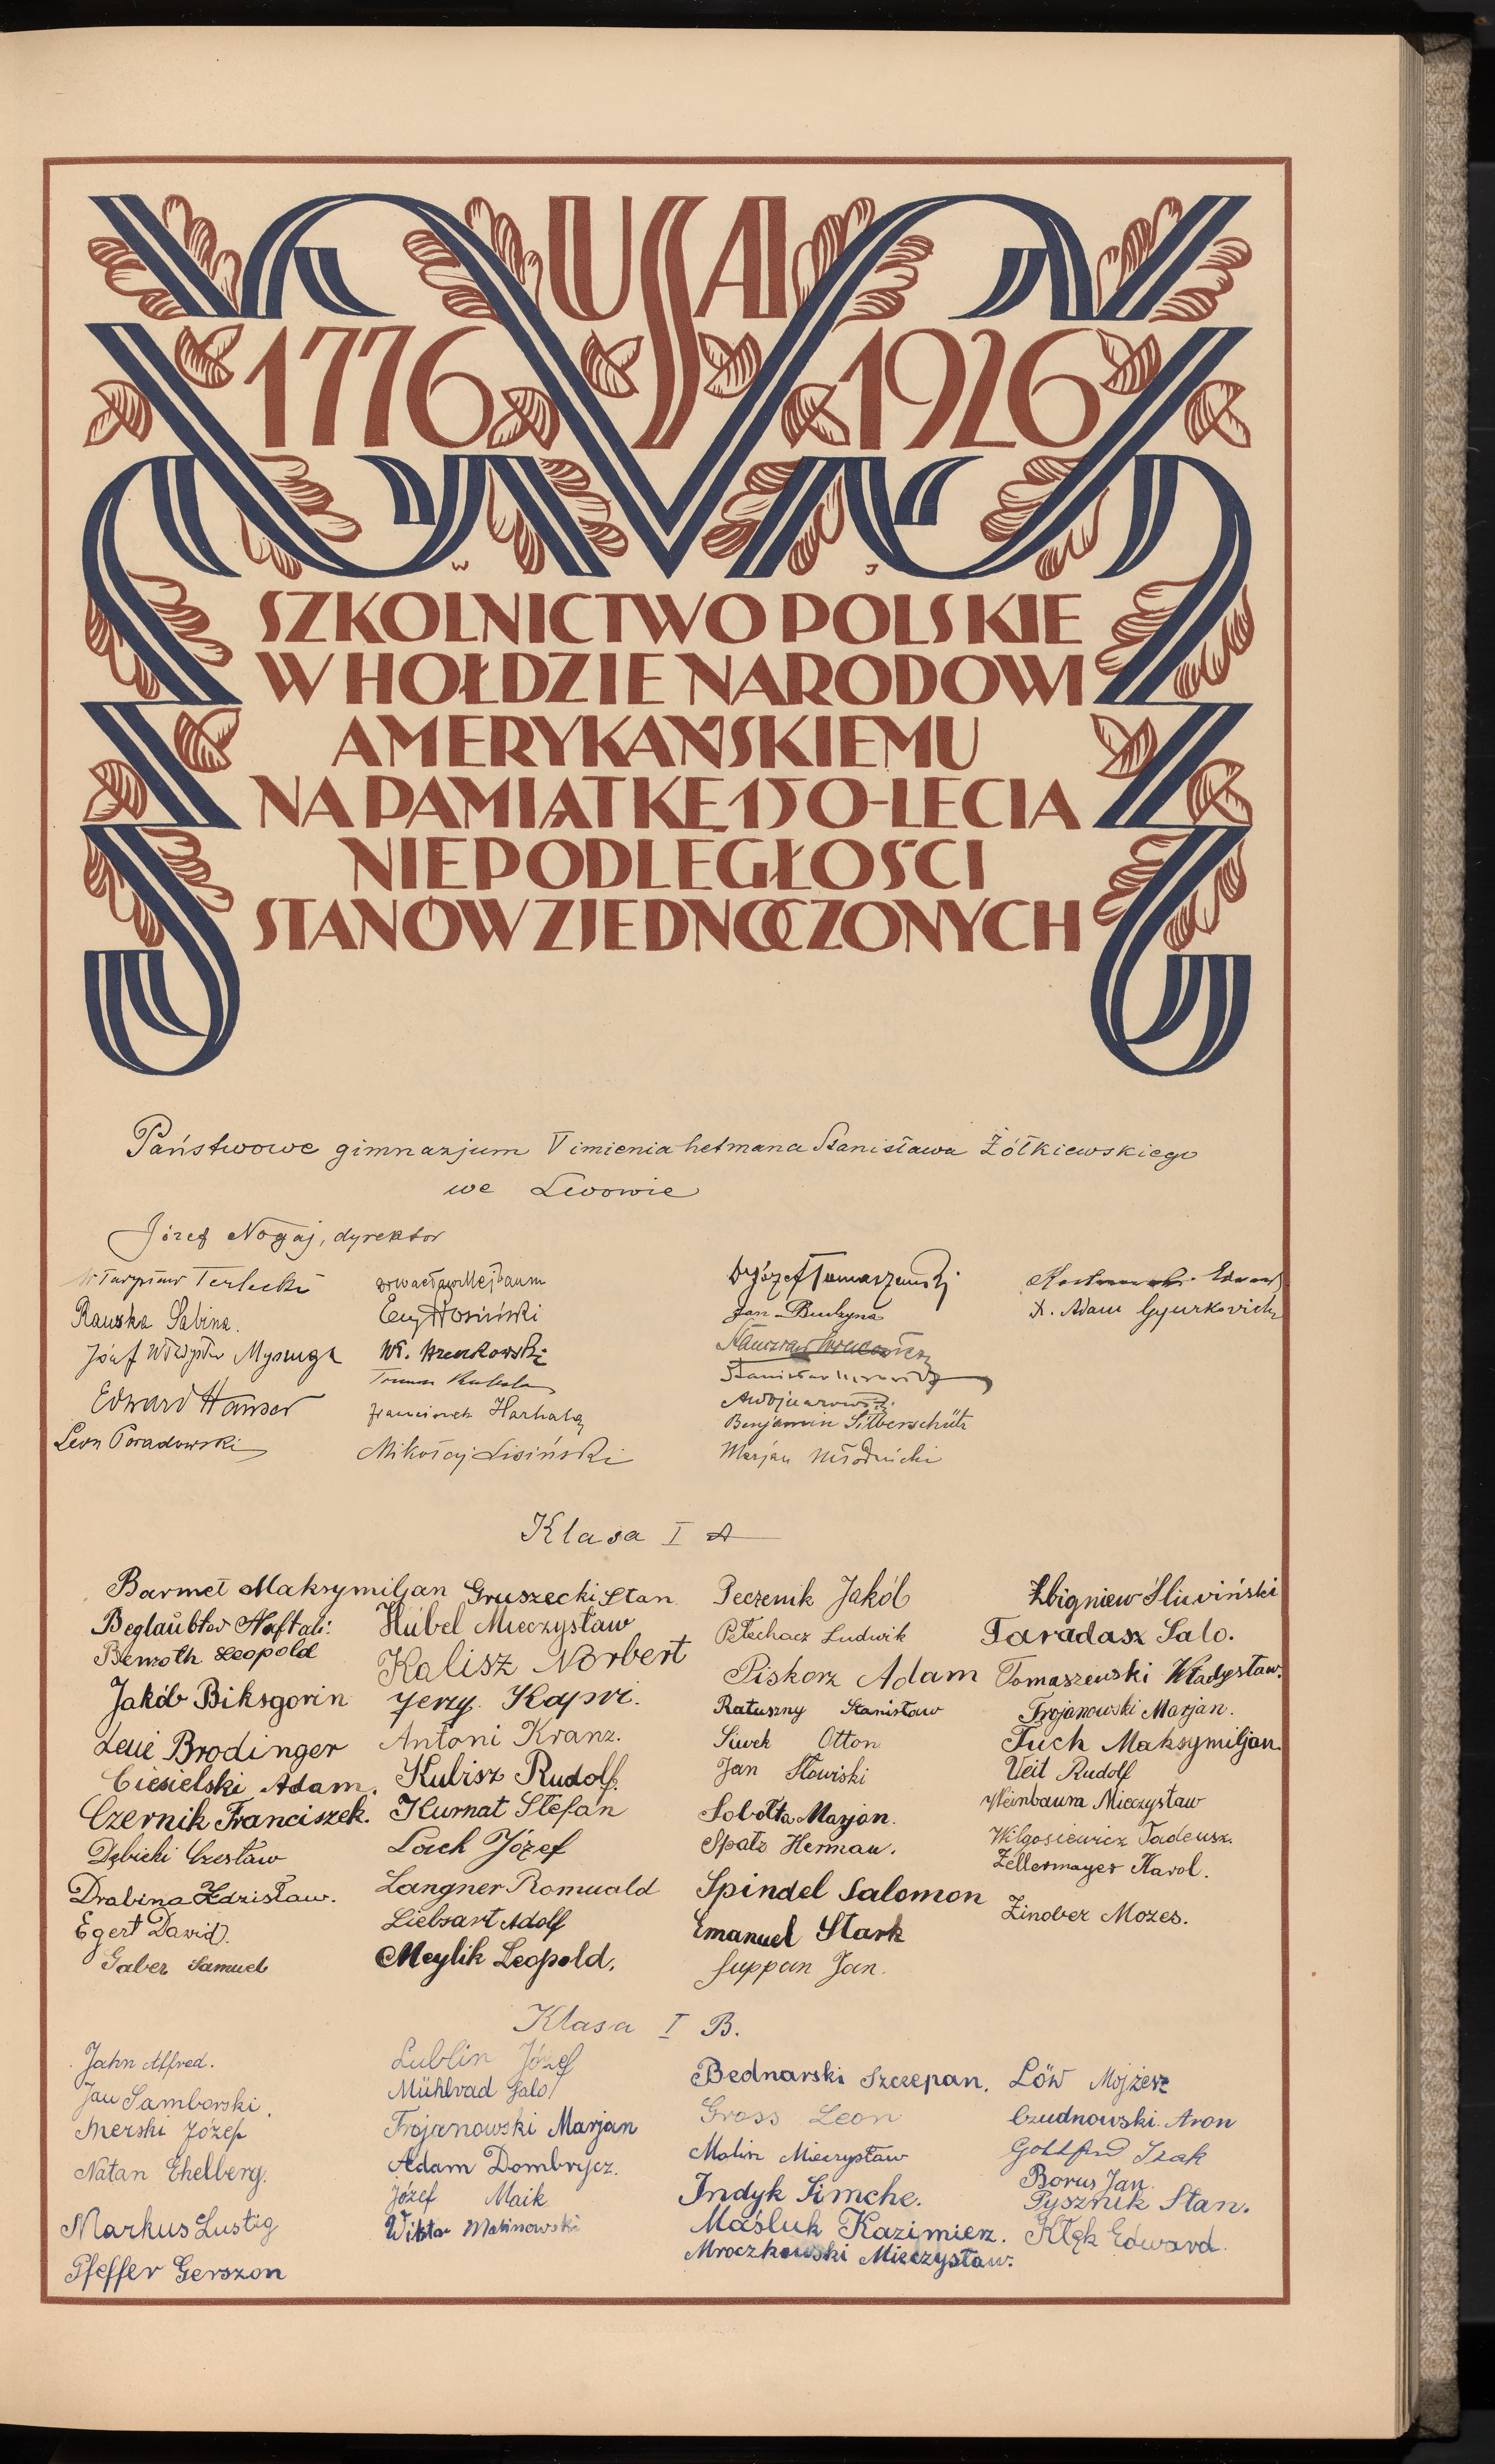 USA
1776 1926
W J
SZKOLNICTWO POLSKIE
W HOŁDZIE NARODOWI
AMERYKAŃSKIEMU
NA PAMIĄTKĘ 150-LECIA
NIEPODLEGŁOŚCI
STANÓW ZJEDNOCZONYCH
Państwowe gimnazjum V imienia hetmana Stanisława Żółkiewskiego
we Lwowie
Józef Nogaj, dyrektor
Terlecki
Rauszka Sabina.
Józef Władysław
Edward Hamser
Leon Poradowski
Wł.
Franciszek Harhala
Mikołaj Lisiński
Dr Józef Tomaszewski
Jan
Stanisław
Benjamin Silberschütz
Marjan Młodnicki
Edward
Dr. Adam Gyurkovich
Klasa I A
Barmet Maksymiljan
Beglaübter Naftali.
Bemoth Leopold
Jakób Biksgorin
Leui Brodinger
Ciesielski Adam.
Czernik Franciszek.
Dębicki Czesław
Drabina Zdzisław.
Egert Dawid.
Gaber Samuel
Gruszecki Stan.
Hübel Mieczysław
Kalisz Norbert
Jerzy Kapri.
Antoni Kranz.
Kubisz Rudolf.
Kurnat Stefan
Lach Józef
Langner Romuald
Liebsart Adolf
Meylik Leopold.
Peczenik Jakób
Pełechacz Ludwik
Piskorz Adam
Ratuszny Stanisław
Siwek Otton
Jan Słowiski
Sobołta Marjan.
Spatz Herman.
Spindel Salomon
Emanuel Stark
Suppan Jan.
Zbigniew Śliwiński
Taradasz Salo.
Tomaszewski Władysław.
Trojanowski Marjan.
Tuch Maksymiljan.
Veit Rudolf
Weinbaum Mieczysław
Wilgosiewicz Tadeusz.
Zellermayer Karol.
Zinober Mozes.
Klasa I B.
Jahn Alfred.
Jan Samborski.
Merski Józef
Natan Ehelberg.
Markus Lustig
Pfeffer Gerszon
Lublin Józef
Mühlrad Salo
Trojanowski Marjan
Adam Dombrycz.
Józef Maik
Wiktor Malinowski
Bednarski Szczepan.
Gross Leon
Malisz Mieczysław
Indyk Simche.
Maśluk Kazimierz.
Mroczkowski Mieczysław.
Löw Mojżesz
Czudnowski Aron
Gottfried Izak
Borus Jan.
Pysznik Stan.
Kłęk Edward.